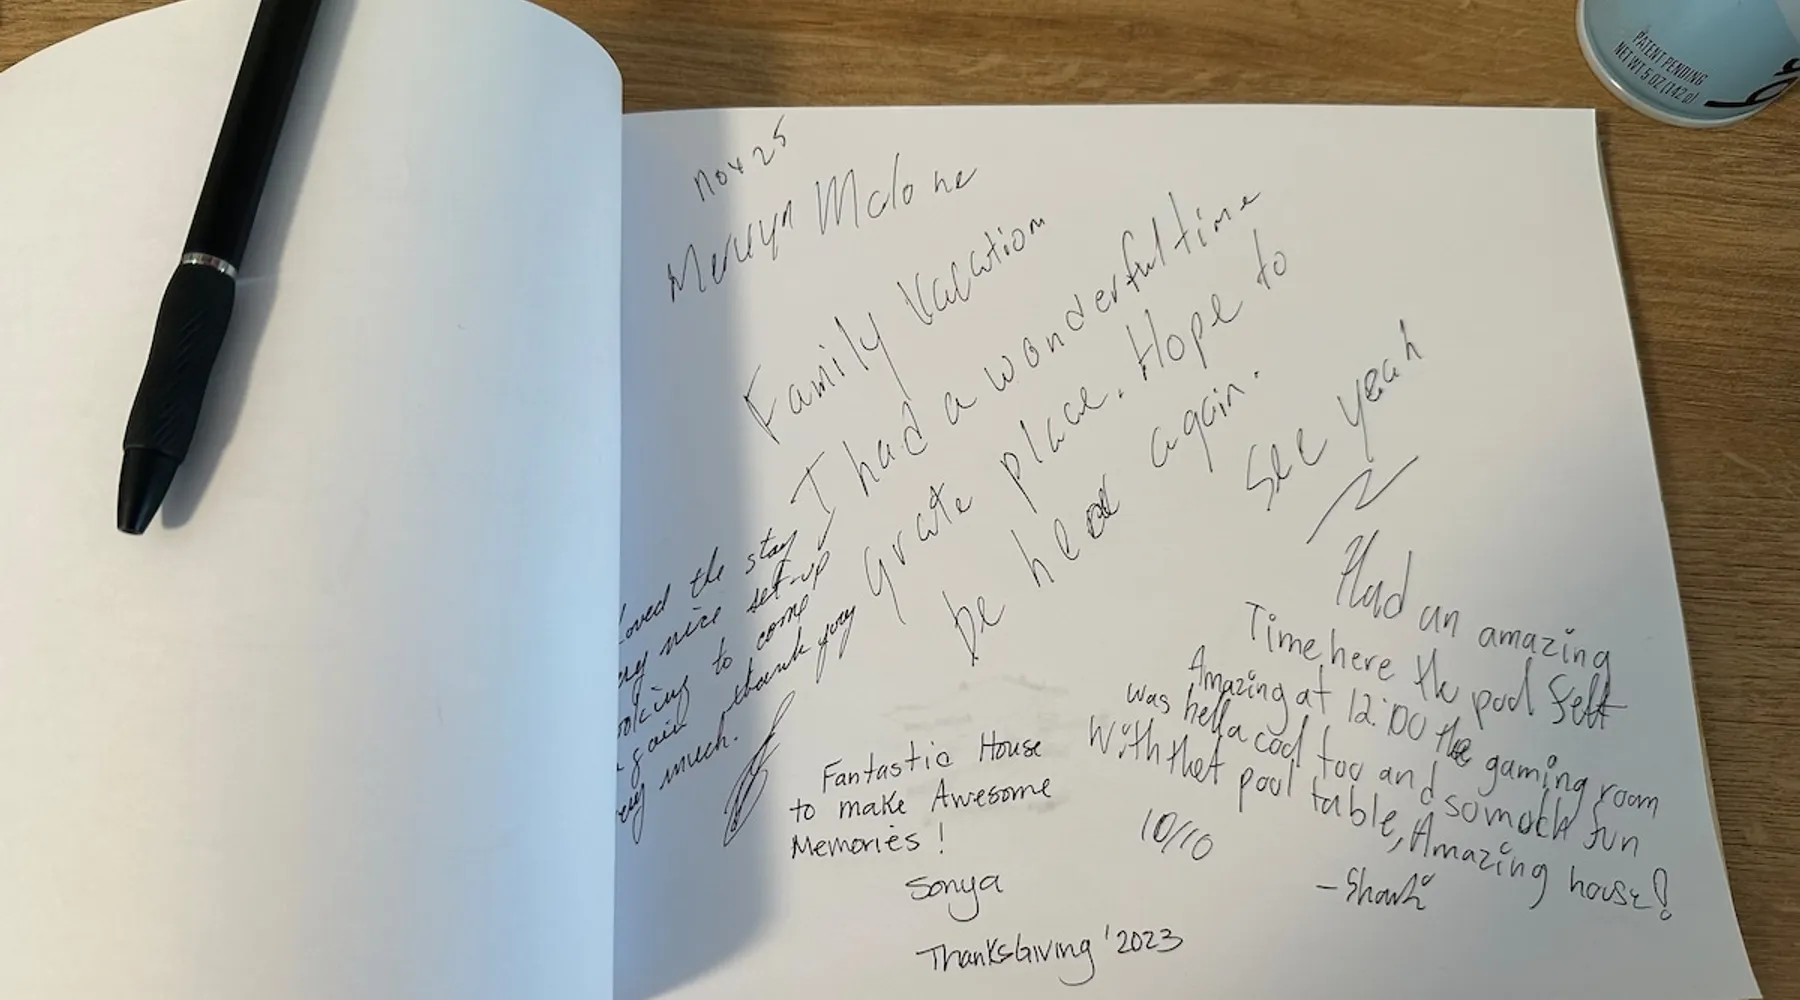 PATENT PENDING
NET WT 5 OZ (142 g)
Nov 25
Mervyn Malone
Family Vacation
I had a wonderful time
grate place. Hope to
be hear again.
See yeah
Loved the stay
nice set-up
to come
again thank you
much.
Fantastic House
to make Awesome
Memories!
Sonya
ThanksGiving '2023
Had an amazing
Time here the pool felt
Amazing at 12:00 the gaming room
was hella cool too and somuch fun
With that pool table, Amazing house!
10/10